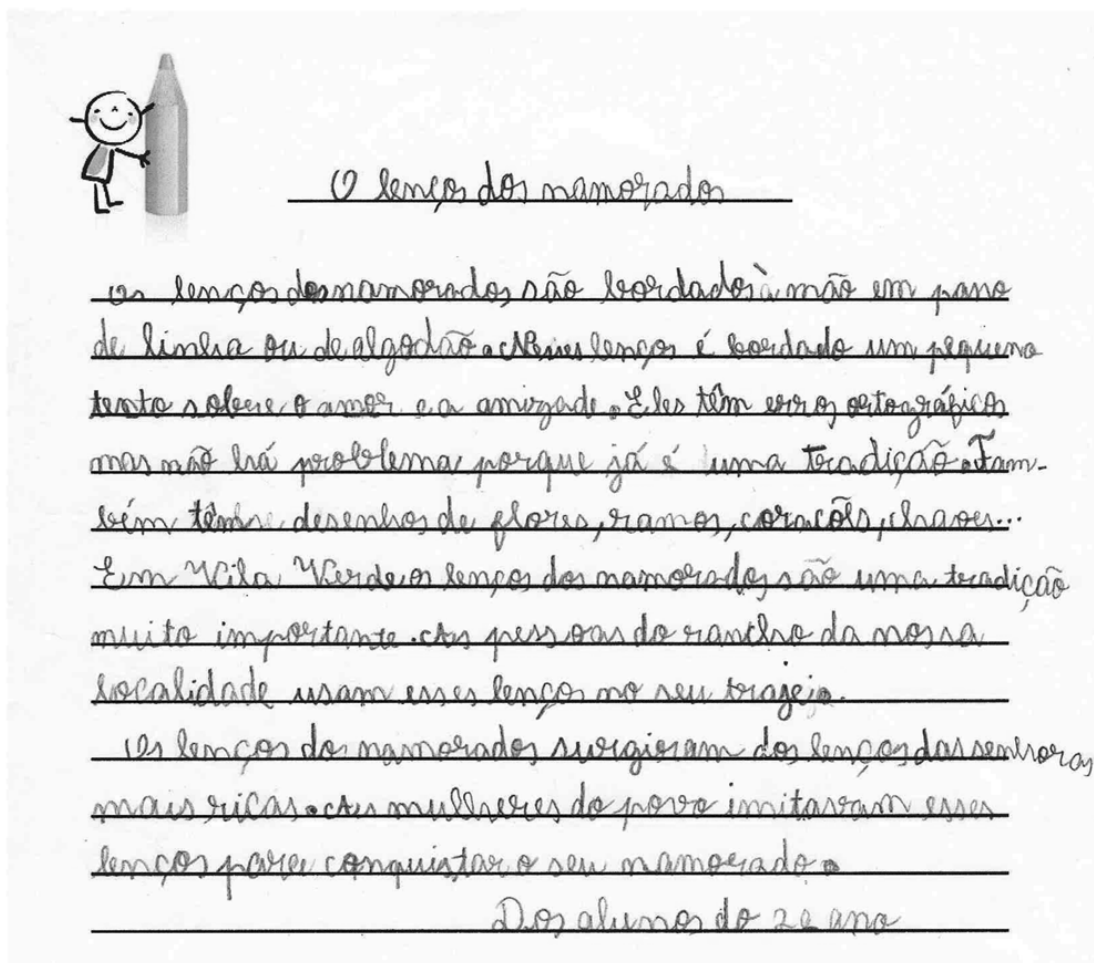 O lenços dos namorados
Os lenços dos namorados são bordados à mão em pano
de linha ou de algodão. Nesses lenços é bordado um pequeno
texto sobre o amor e a amizade. Eles têm erros ortográficos
mas não há problema porque já é uma tradição. Tam-
bém têm desenhos de flores, ramos, coracões, chaves...
Em Vila Verde os lenços dos namorados são uma tradição
muito importante. As pessoas do rancho da nossa
localidade usam esses lenços no seu traje.
Os lenços dos namorados surgiram dos lenços das senhoras
mais ricas. As mulheres do povo imitavam esses
lenços para conquistar o seu namorado.
Dos alunos do 2º ano